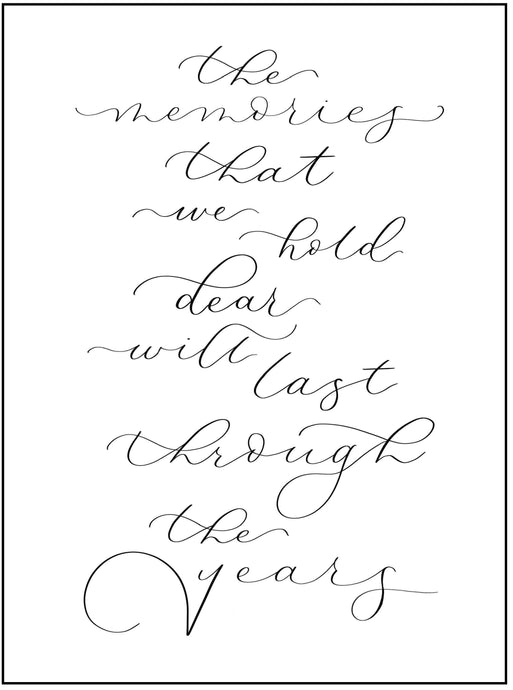 the
memories
that
we
hold
dear
will
last
through
the
years